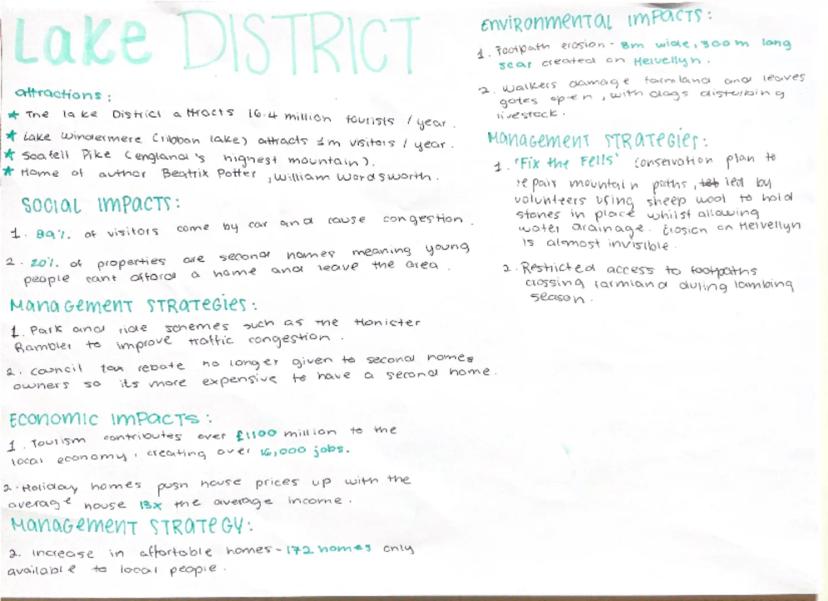 Lake DISTRICT
attractions:
★ The lake District attracts 16.4 million tourists / year.
★ Lake Windermere (ribbon lake) attracts 1m visitors / year.
★ Scafell Pike (england's highest mountain).
★ Home of author Beatrix Potter, William Wordsworth.
SOCIAL IMPACTS:
1. 89% of visitors come by car and cause congestion.
2. 20% of properties are second homes meaning young
people cant afford a home and leave the area.
Management STRATegies:
1. Park and ride schemes such as the Honister
Rambler to improve traffic congestion.
2. council tax rebate no longer given to second homes
owners so its more expensive to have a second home.
ECONOMIC IMPACTS:
1. Tourism contributes over £1100 million to the
local economy, creating over 16,000 jobs.
2. Holiday homes push house prices up with the
average house 13x the average income.
Management STRATEGY:
2. increase in affortable homes - 172 homes only
available to local people.
Environmental impacts:
1. Footpath erosion - 8m wide, 300m long
scar created on Helvellyn.
2. Walkers damage farmland and leaves
gates open, with dogs disturbing
livestock.
Management STRATEgies:
1. 'Fix the Fells' conservation plan to
repair mountain paths, led by
volunteers using sheep wool to hold
stones in place whilst allowing
water drainage. Erosion on Helvellyn
is almost invisible.
2. Restricted access to footpaths
crossing farmland during lambing
season.